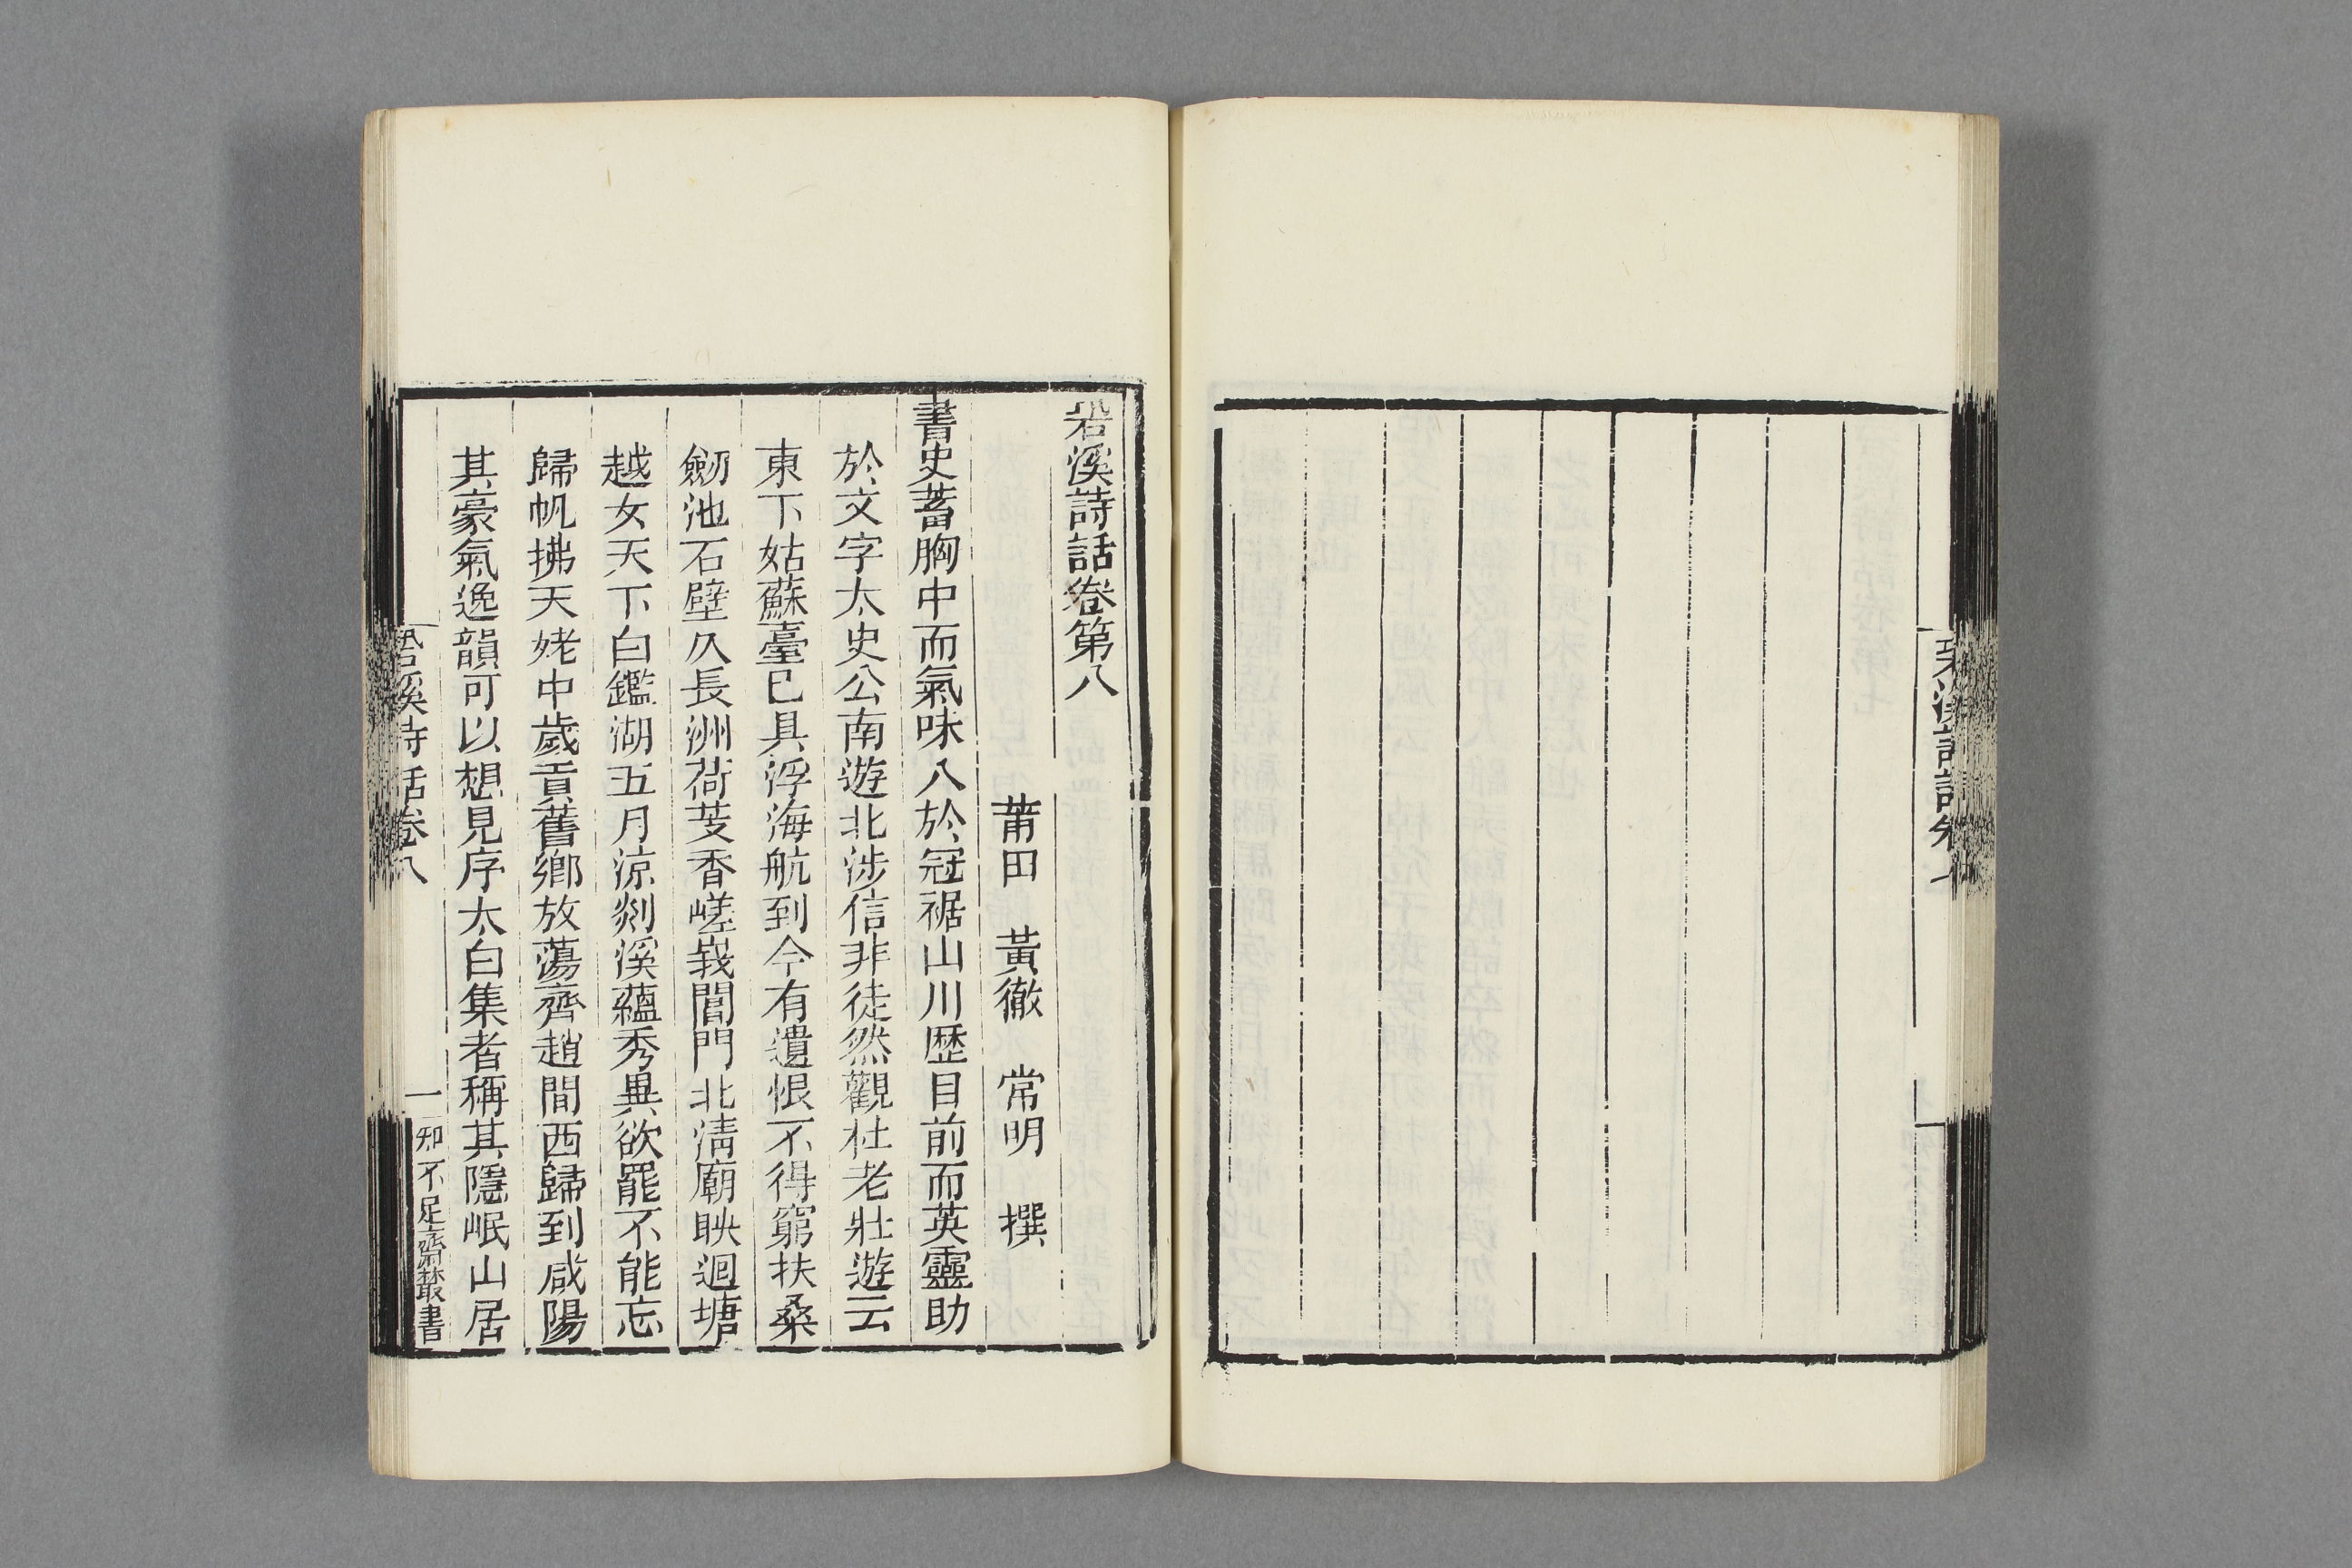 䂬溪詩話卷七
䂬溪詩話卷第八
莆田　黃徹　常明　撰
書史蓄胸中而氣味入於冠裾山川歷目前而英靈助
於文字太史公南遊北涉信非徒然觀杜老壯遊云
東下姑蘇臺已具浮海航到今有遺恨不得窮扶桑
劒池石壁仄長洲荷芰香嵯峩閶門北清廟映迴塘
越女天下白鑑湖五月涼剡溪蘊秀異欲罷不能忘
歸帆拂天姥中歲貢舊鄉放蕩齊趙間西歸到咸陽
其豪氣逸韻可以想見序太白集者稱其隱岷山居
䂬溪詩話卷八　一　知不足齋叢書